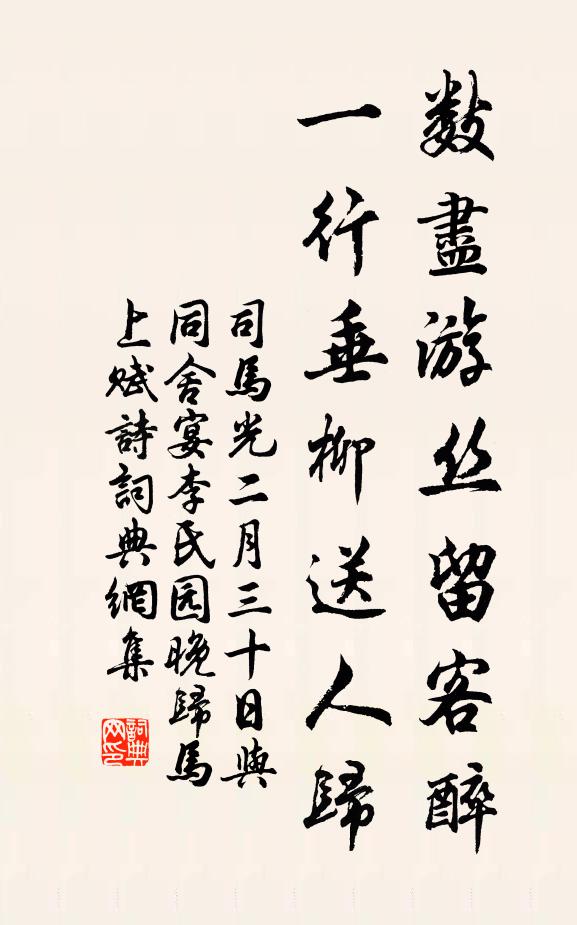 数盡游丝留客醉
一行垂柳送人歸
司馬光二月三十日與
同舍宴李氏园晚歸馬
上赋詩詞典網集
詞典
网印